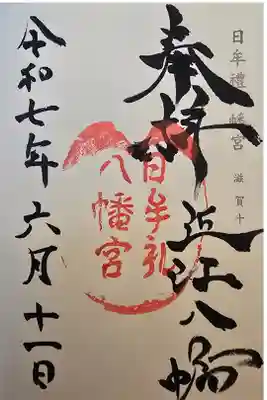 日牟禮八幡宮 滋賀十
奉拝
近江八幡
日牟礼
八幡宮
令和七年六月十一日